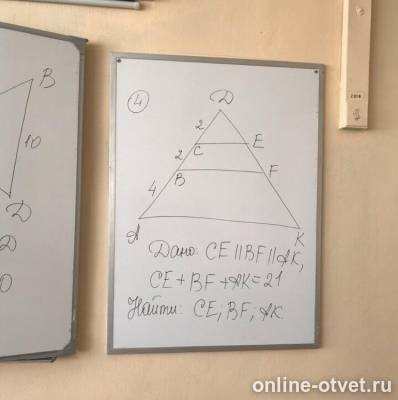 4
Д
2
C E
2
B F
4
A K
Дано: CE || BF || AK,
CE + BF + AK = 21
Найти: CE, BF, AK.
B
10
D
online-otvet.ru